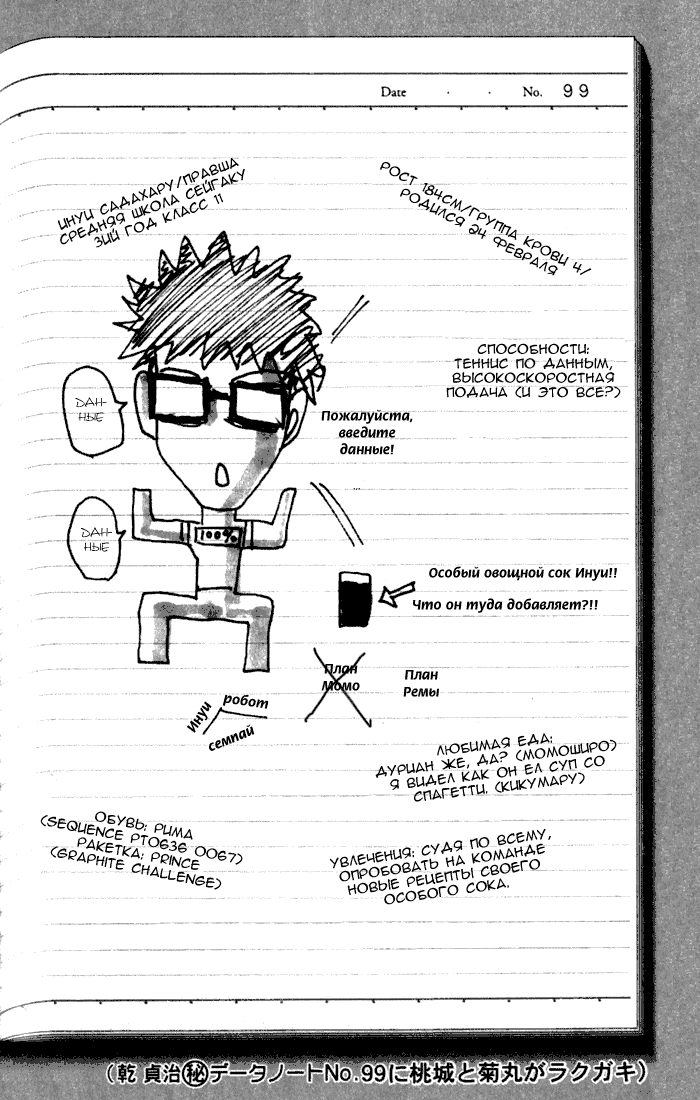 Date . . No. 99
ИНУИ САДАХАРУ/ПРАВША
СРЕДНЯЯ ШКОЛА СЕЙГАКУ
3ИЙ ГОД КЛАСС 11
РОСТ 184СМ/ГРУППА КРОВИ 4/
РОДИЛСЯ 24 ФЕВРАЛЯ
СПОСОБНОСТИ:
ТЕННИС ПО ДАННЫМ,
ВЫСОКОСКОРОСТНАЯ
ПОДАЧА (И ЭТО ВСЕ?)
ДАН-
НЫЕ
Пожалуйста,
введите
данные!
...
ДАН-
НЫЕ
100%
Особый овощной сок Инуи!!
Что он туда добавляет?!!
План
Момо
План
Ремы
Инуи
робот
семпай
ЛЮБИМАЯ ЕДА:
ДУРИАН ЖЕ, ДА? (МОМОШИРО)
Я ВИДЕЛ КАК ОН ЕЛ СУП СО
СПАГЕТТИ. (КИКУМАРУ)
ОБУВЬ: РИМА
(SEQUENCE PTO636 0067)
РАКЕТКА: PRINCE
(GRAPHITE CHALLENGE)
УВЛЕЧЕНИЯ: СУДЯ ПО ВСЕМУ,
ОПРОБОВАТЬ НА КОМАНДЕ
НОВЫЕ РЕЦЕПТЫ СВОЕГО
ОСОБОГО СОКА.
(乾 貞治㊙データノートNo.99に桃城と菊丸がラクガキ)